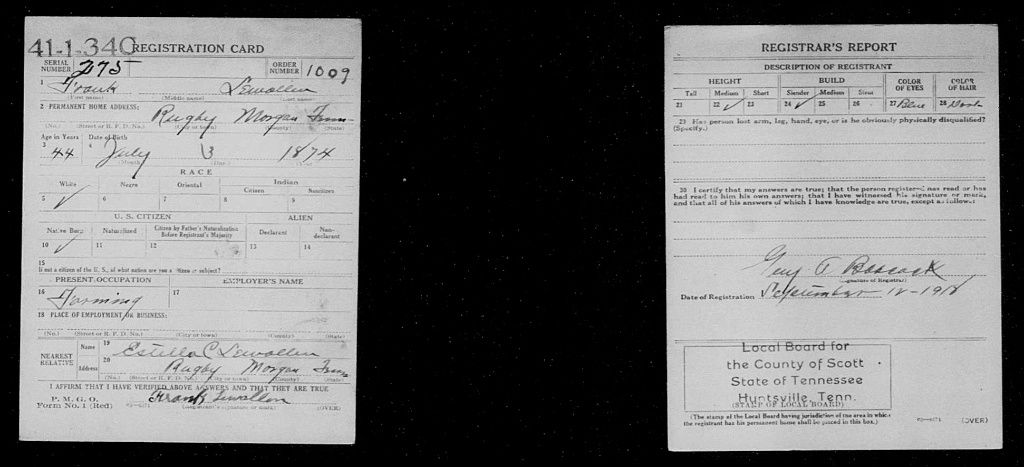 41-1-340 REGISTRATION CARD
SERIAL NUMBER 275 ORDER NUMBER 1009
1 Frank Lewallen
(First name) (Middle name) (Last name)
2 PERMANENT HOME ADDRESS:
Rugby Morgan Tenn
(No.) (Street or R. F. D. No.) (City or town) (County) (State)
Age in Years Date of Birth
3 44 4 July 3 1874
(Month) (Day) (Year)
RACE
White Negro Oriental Indian
Citizen Noncitizen
5 ✓ 6 7 8 9
U. S. CITIZEN ALIEN
Native Born Naturalized Citizen by Father's Naturalization Before Registrant's Majority Declarant Non-declarant
10 ✓ 11 12 13 14
15
If not a citizen of the U. S., of what nation are you a citizen or subject?
PRESENT OCCUPATION EMPLOYER'S NAME
16 Farming 17
18 PLACE OF EMPLOYMENT OR BUSINESS:
(No.) (Street or R. F. D. No.) (City or town) (County) (State)
NEAREST RELATIVE Name 19 Estella C Lewallen
Address 20 Rugby Morgan Tenn
(No.) (Street or R. F. D. No.) (City or town) (County) (State)
I AFFIRM THAT I HAVE VERIFIED ABOVE ANSWERS AND THAT THEY ARE TRUE
P. M. G. O.
Form No. 1 (Red) Frank Lewallen
(Registrant's signature or mark) (OVER)
REGISTRAR'S REPORT
DESCRIPTION OF REGISTRANT
HEIGHT BUILD COLOR OF EYES COLOR OF HAIR
Tall Medium Short Slender Medium Stout
21 22 ✓ 23 24 ✓ 25 26 27 Blue 28
29 Has person lost arm, leg, hand, eye, or is he obviously physically disqualified?
(Specify.)
30 I certify that my answers are true; that the person registered has read or has
had read to him his own answers; that I have witnessed his signature or mark,
and that all of his answers of which I have knowledge are true, except as follows:
(Signature of Registrar)
Date of Registration September 12-1918
Local Board for
the County of Scott
State of Tennessee
Huntsville, Tenn.
(STAMP OF LOCAL BOARD)
(The stamp of the Local Board having jurisdiction of the area in which
the registrant has his permanent home shall be placed in this box.)
(OVER)